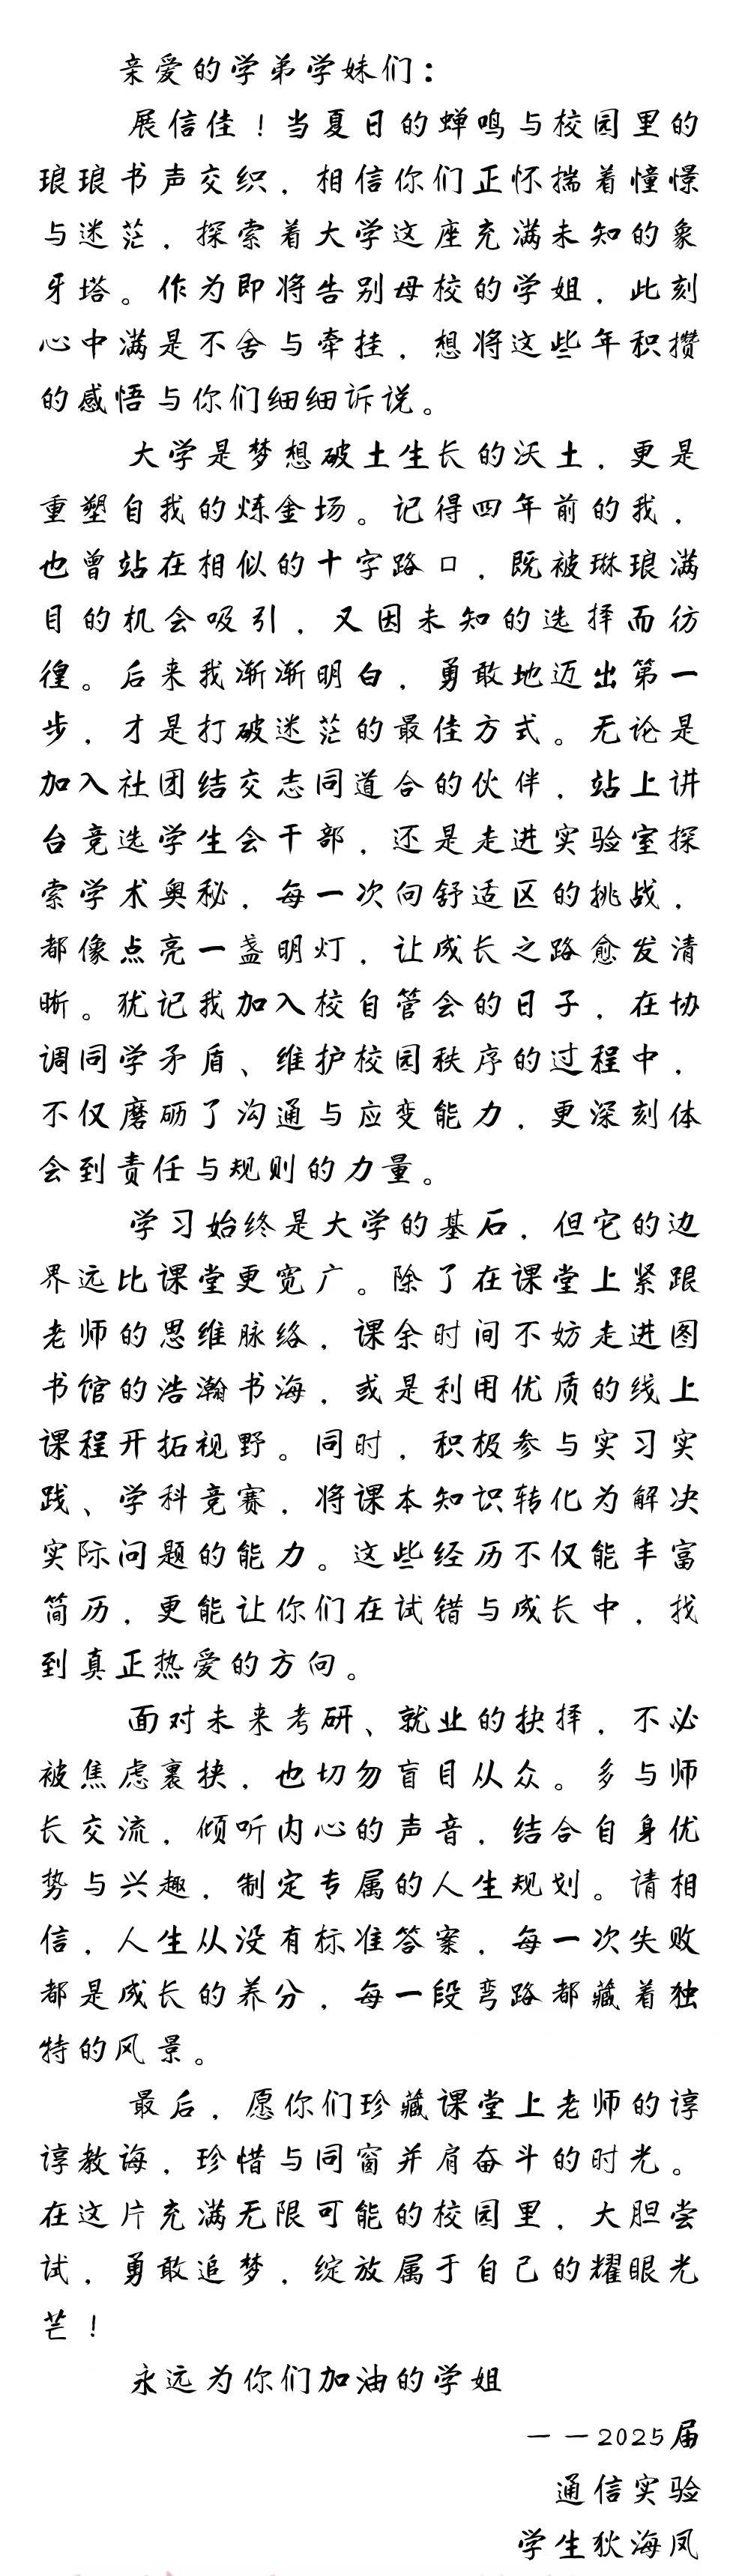 亲爱的学弟学妹们：
展信佳！当夏日的蝉鸣与校园里的
琅琅书声交织，相信你们正怀揣着憧憬
与迷茫，探索着大学这座充满未知的象
牙塔。作为即将告别母校的学姐，此刻
心中满是不舍与牵挂，想将这些年积攒
的感悟与你们细细诉说。
大学是梦想破土生长的沃土，更是
重塑自我的炼金场。记得四年前的我，
也曾站在相似的十字路口，既被琳琅满
目的机会吸引，又因未知的选择而彷
徨。后来我渐渐明白，勇敢地迈出第一
步，才是打破迷茫的最佳方式。无论是
加入社团结交志同道合的伙伴，站上讲
台竞选学生会干部，还是走进实验室探
索学术奥秘，每一次向舒适区的挑战，
都像点亮一盏明灯，让成长之路愈发清
晰。犹记我加入校自管会的日子，在协
调同学矛盾、维护校园秩序的过程中，
不仅磨砺了沟通与应变能力，更深刻体
会到责任与规则的力量。
学习始终是大学的基石，但它的边
界远比课堂更宽广。除了在课堂上紧跟
老师的思维脉络，课余时间不妨走进图
书馆的浩瀚书海，或是利用优质的线上
课程开拓视野。同时，积极参与实习实
践、学科竞赛，将课本知识转化为解决
实际问题的能力。这些经历不仅能丰富
简历，更能让你们在试错与成长中，找
到真正热爱的方向。
面对未来考研、就业的抉择，不必
被焦虑裹挟，也切勿盲目从众。多与师
长交流，倾听内心的声音，结合自身优
势与兴趣，制定专属的人生规划。请相
信，人生从没有标准答案，每一次失败
都是成长的养分，每一段弯路都藏着独
特的风景。
最后，愿你们珍藏课堂上老师的谆
谆教诲，珍惜与同窗并肩奋斗的时光。
在这片充满无限可能的校园里，大胆尝
试，勇敢追梦，绽放属于自己的耀眼光
芒！
永远为你们加油的学姐
——2025届
通信实验
学生狄海凤